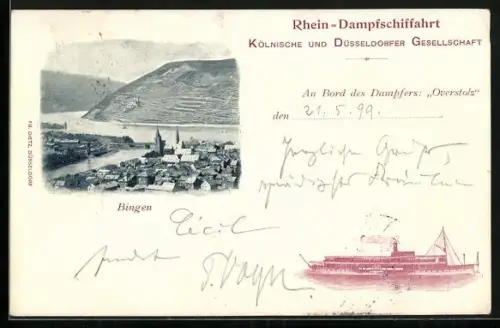 Rhein-Dampfschiffahrt
KÖLNISCHE UND DÜSSELDORFER GESELLSCHAFT
An Bord des Dampfers: „Overstolz“
den 21. 5. 99.
Herzliche Grüße,
FR. DIETZ, DÜSSELDORF
Bingen
Cécil
sendet